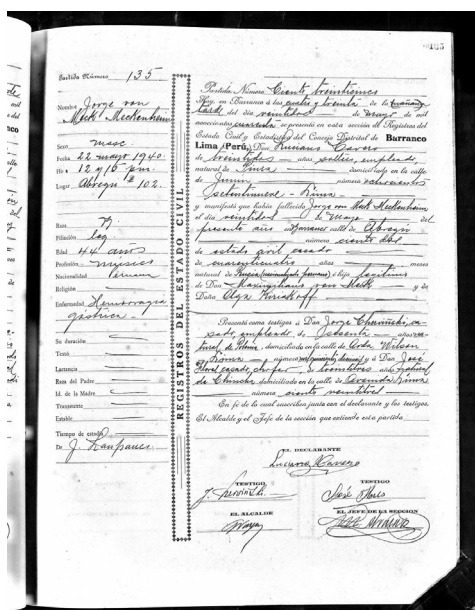 135
Partida Número 135
Nombre Jorge von
Meck Meckenheim
Sexo masc
Fecha 22 mayo 1940.
Ho a 12 y 15 pm.
Lugar Abregú # 102.
Raza B.
Filiación leg
Edad 44 años
Profesión músico
Nacionalidad Peruana
Religión
Enfermedad Hemorragia
gástrica.
Su duración
Testó
Lactancia
Raza del Padre
Id. de la Madre
Transeunte
Estable
Tiempo de estadía
De J. Lanfranco
REGISTROS DEL ESTADO CIVIL
Partida Número Ciento treinticinco
Hoy, en Barranco á las cuatro y treinta de la mañana
tarde del día veintidos de mayo de mil
novecientos cuarenta se presentó en esta sección de Registros del
Estado Civil y Estadística del Concejo Distrital de Barranco
Lima (Perú), Don Luciano Cavero
de treintidos años soltero, empleado,
natural de Lima domiciliado en la calle
de Junín número novecientos
setentinueve - Lima
y manifestó que había fallecido Jorge von Meck Meckenheim
el día veintidos de Mayo del
presente año en Barranco calle de Abregú
número ciento dos
de estado civil casado
de cuarenticuatro años meses
natural de Rusia (nacionalizado peruano) é hijo legítimo
de Don Maximiliano von Meck y de
Doña Olga Kirakoff
Presentó como testigos á Don Jorge
sado, empleado de sesenta años
tural de Polonia, domiciliado en la calle de Avda Wilson
Lima número y á Don José
Flores casado, chofer, de treintitres años natural
de Chincha domiciliado en la calle de Avenida Lima
número ciento veintitres
En fé de lo cual suscriben junto con el declarante y los testigos.
El Alcalde y el Jefe de la sección que extiende esta partida.
EL DECLARANTE
Luciano Cavero
TESTIGO
TESTIGO
José Flores
EL ALCALDE
EL JEFE DE LA SECCION